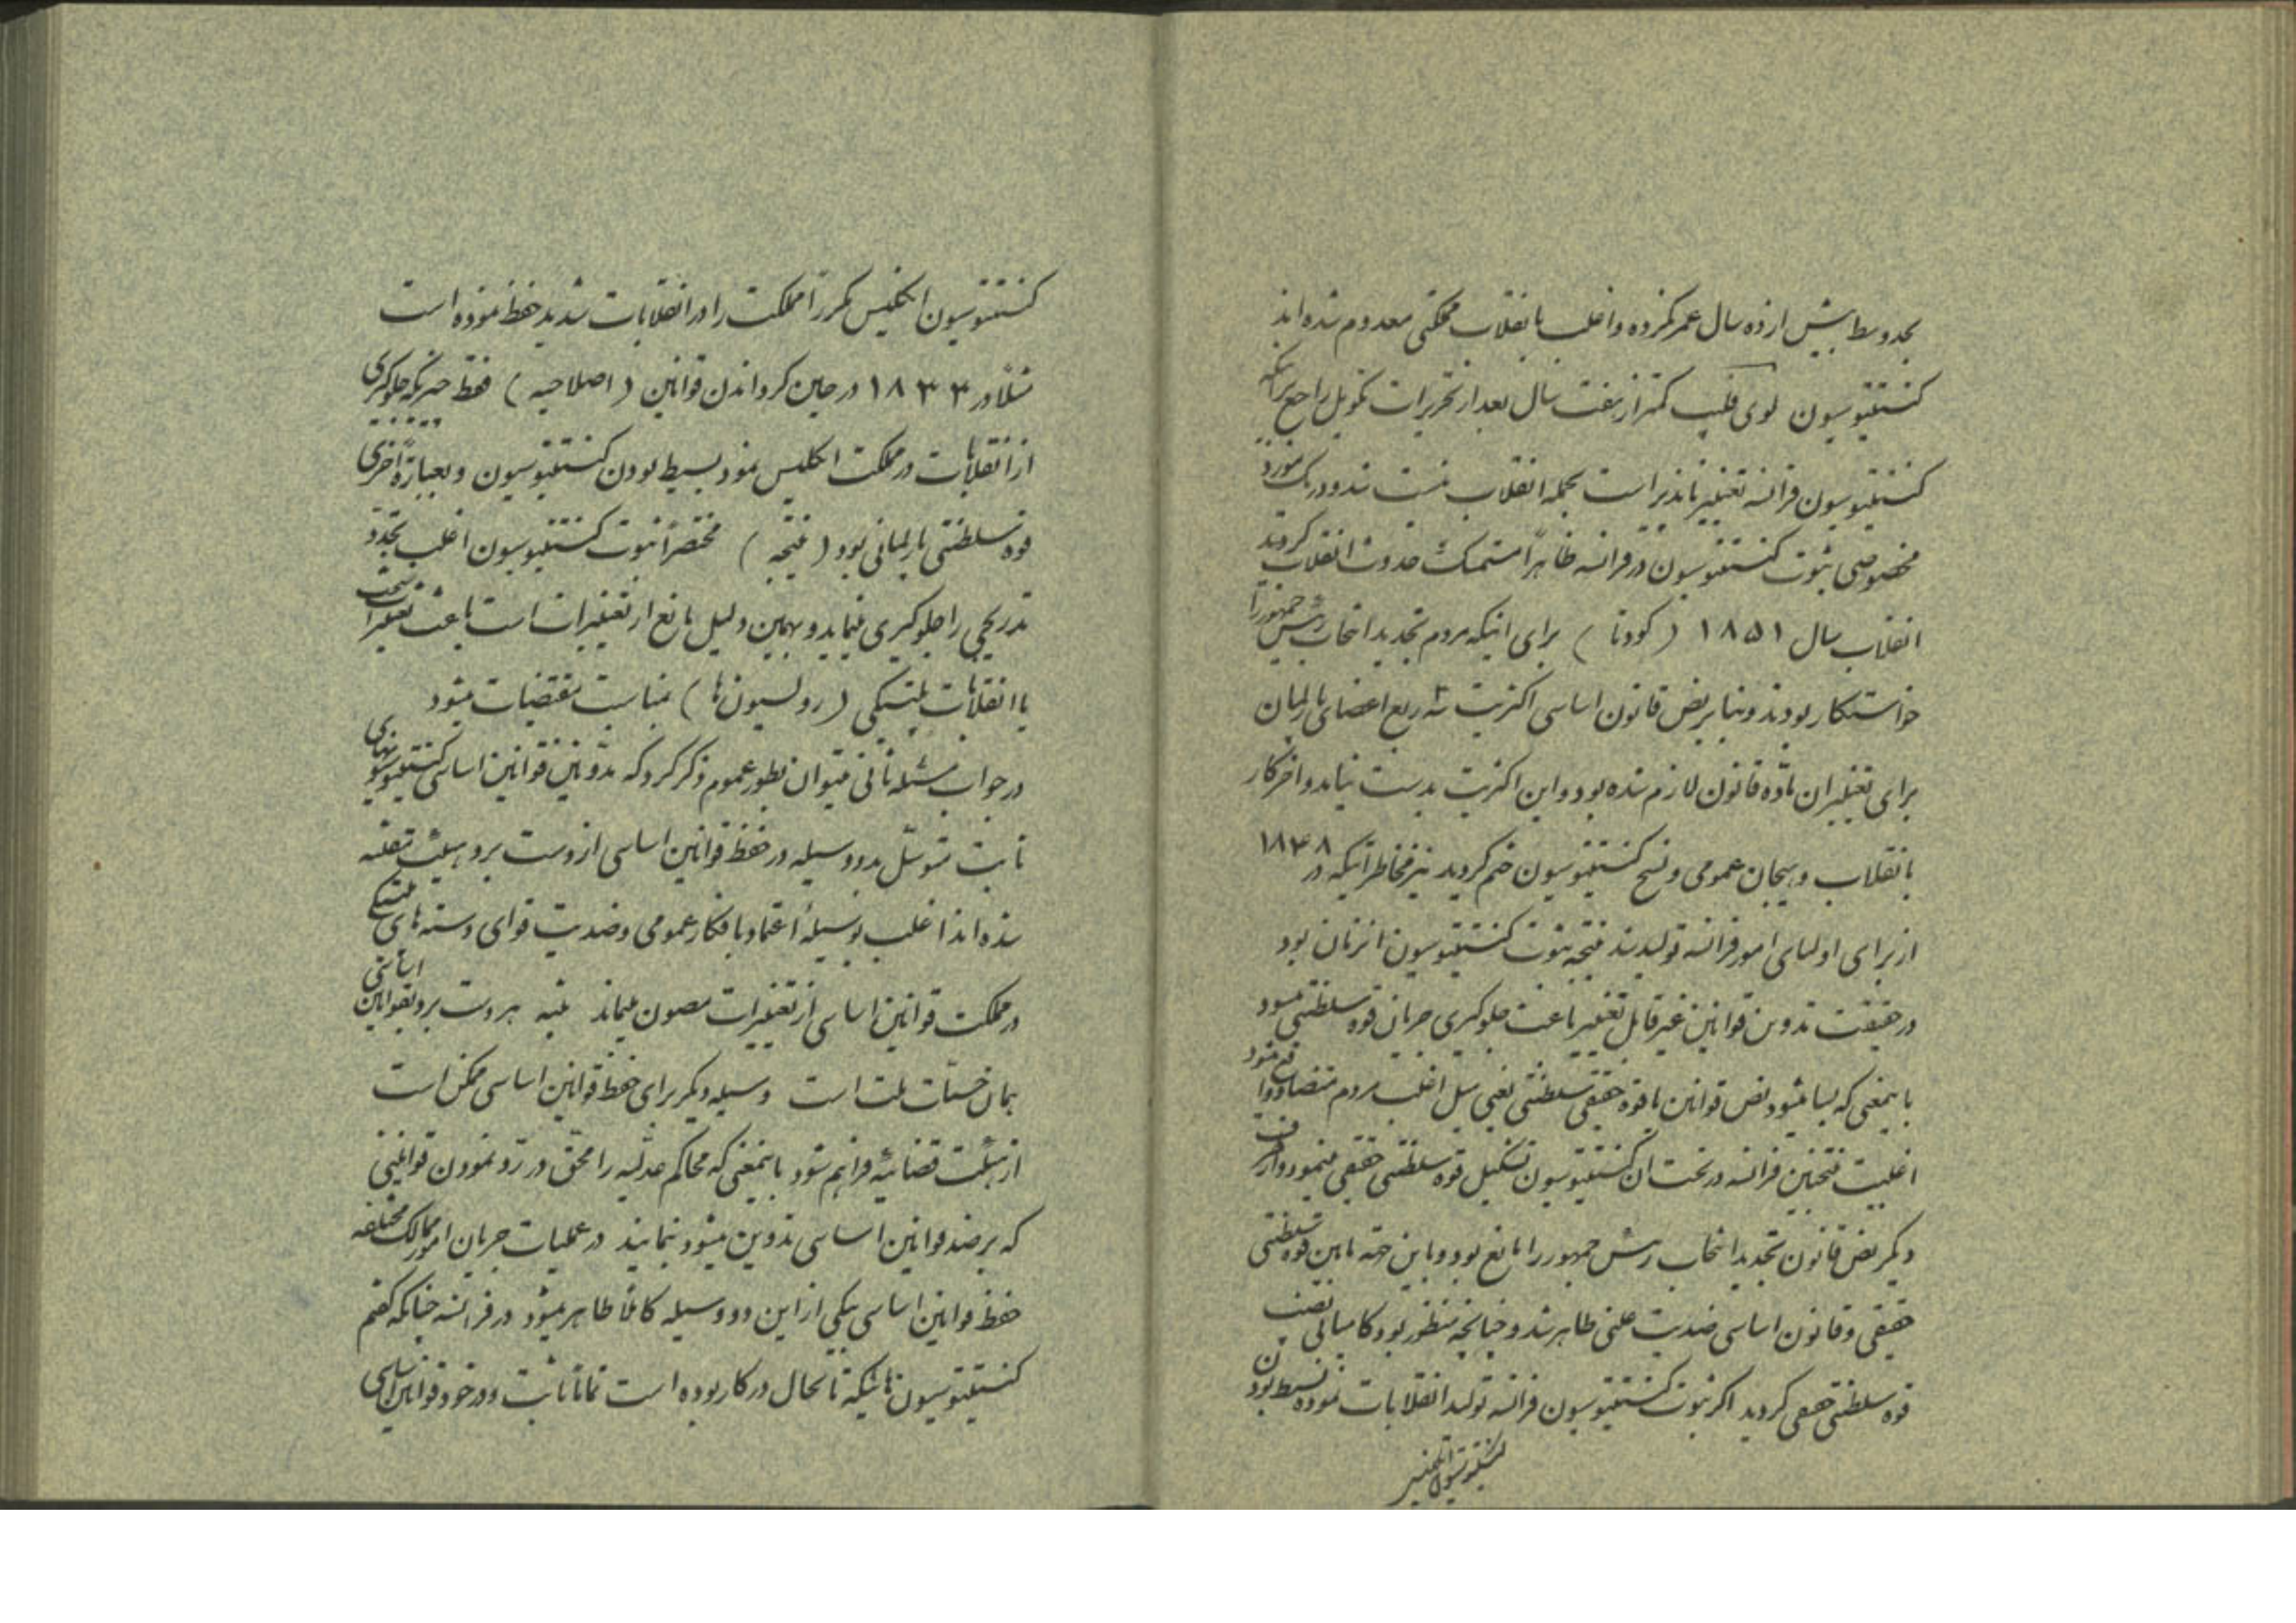 بحد وسط بیش از ده سال عمر نکرده و اغلب بانقلاب مملکتی معدوم شده‌اند
کنستیتوسیون لوی فلیپ کمتر از هفت سال بعد از تحریرات تکویل راجع باینکه
کنستیتوسیون فرانسه تغییر ناپذیر است بحمله انقلاب نیست شد و در یک مورد
مخصوصی ثبوت کنستیتوسیون در فرانسه ظاهراً مستمسک حدوث انقلاب گردید
انقلاب سال ۱۸۵۱ (کودتا) برای اینکه مردم تجدید انتخاب رئیس جمهور را
خواستکار بودند و بنابر نص قانون اساسی اکثریت سه ربع اعضای پارلمان
برای تغییر ان ماده قانون لازم شده بود و این اکثریت بدست نیامد و اخر کار
بانقلاب و هیجان عمومی و نسخ کنستیتوسیون ختم گردید نیز مخاطراتیکه در ۱۸۴۸
از برای اولیای امور فرانسه تولید شد نتیجه ثبوت کنستیتوسیون انزمان بود
در حقیقت تدوین قوانین غیر قابل تغییر باعث جلوگیری جریان قوه سلطنتی میشود
باینمعنی که بسا میشود نص قوانین با قوه حقیقی سلطنتی یعنی میل اغلب مردم متضاد واقع میشود
اغلبیت منتخبین فرانسه در تحت ان کنستیتوسیون تشکیل قوه سلطنتی حقیقی مینمود و از طرف
دیگر نص قانون تجدید انتخاب رئیس جمهور را مانع بود و باین جهة مابین قوه سلطنتی
حقیقی و قانون اساسی ضدیت علنی ظاهر شد و چنانچه منتظر بود کامیابی نصیب
قوه سلطنتی حقیقی گردید اگر ثبوت کنستیتوسیون فرانسه تولید انقلابات نموده بسیط بودن
کنستیتوسیون انگلیس
کنستیتوسیون انگلیس مکرراً مملکت را در انقلابات شدید حفظ نموده است
مثلاً در ۱۸۳۲ در حین گرواندن قوانین (اصلاحیه) فقط چیزیکه جلوگیری
از انقلابات در مملکت انگلیس نمود بسیط بودن کنستیتوسیون و بعبارة اخری
قوه سلطنتی پارلمانی بود (نتیجه) مختصراً ثبوت کنستیتوسیون اغلب تجدد
تدریجی را جلوگیری مینماید و بهمین دلیل مانع از تغییرات است باعث تغییرات سخت
یا انقلابات پلتیکی (رولسیون‌ها) بمناسبت مقتضیات میشود
در جواب مسئله ثانی میتوان بطور عموم ذکر کرد که مدونین قوانین اساسی کنستیتوسیونهای
ثابت متوسل بدو وسیله در حفظ قوانین اساسی از دست برد هیئت مقننه
شده‌اند اغلب بوسیله اعتماد بافکار عمومی و ضدیت قوای دسته‌های پلتیکی
در مملکت قوانین اساسی از تغییرات مصون میماند تنبه هر دست برد بقوانین اساسی
بمان حسیات ملت است وسیله دیگر برای حفظ قوانین اساسی ممکن است
از هیئت قضائیه فراهم شود باینمعنی که محاکم عدلیه را محق در رد نمودن قوانینی
که بر ضد قوانین اساسی تدوین میشود بنمایند در عملیات جریان امور ممالک مختلفه
حفظ قوانین اساسی بیکی از این دو وسیله کاملاً ظاهر میشود در فرانسه چنانکه گفتم
کنستیتوسیون هائیکه تا بحال در کار بوده است تماماً ثابت و در خود قوانین اساسی